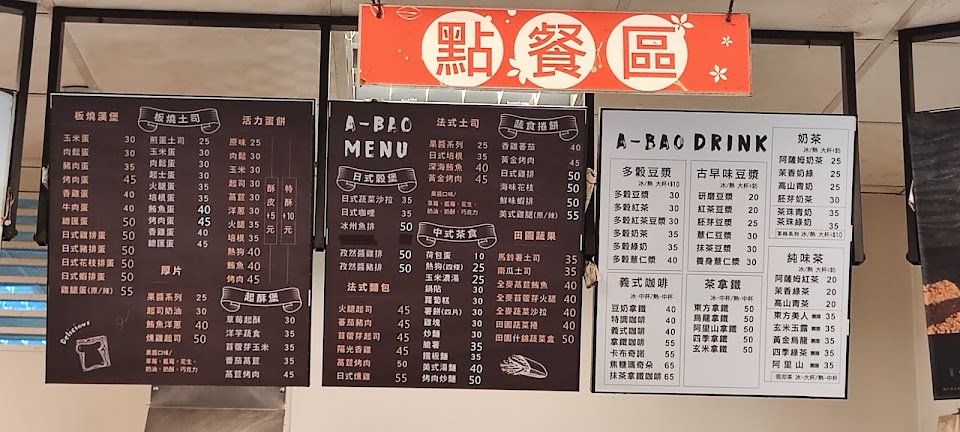 點餐區
板燒漢堡
玉米蛋 30
肉鬆蛋 30
豬肉蛋 35
烤肉蛋 40
香雞蛋 40
牛肉蛋 40
總匯蛋 50
日式雞排蛋 50
日式豬排蛋 50
日式花枝排蛋 50
日式蝦排蛋 50
雞腿蛋(原/辣) 55
板燒土司
煎蛋土司 25
玉米蛋 30
肉鬆蛋 30
起士蛋 30
火腿蛋 35
培根蛋 35
鮪魚蛋 40
烤肉蛋 45
香雞蛋 40
總匯蛋 45
活力蛋餅
原味 25
肉鬆 30
玉米 30
起司 30
蔬菜 30
洋蔥 30
火腿 35
培根 35
熱狗 40
鮪魚 40
烤肉 45
酥皮+5元
特酥+10元
厚片
果醬系列 25
起司奶油 30
鮪魚洋蔥 40
燻雞起司 45
果醬口味/
草莓、藍莓、花生、
奶油、奶酥、巧克力
Delicious
起酥堡
草莓起酥 30
洋芋蔬食 35
苜蓿芽玉米 35
番茄萵苣 35
萵苣烤肉 45
A-BAO
MENU
日式穀堡
日式蔬菜沙拉 35
日式咖哩 35
冰州魚排 50
孜然醬雞排 50
孜然醬豬排 50
法式麵包
火腿起司 45
蕃茄豬肉 45
苜蓿芽起司 45
陽光香雞 45
萵苣烤肉 50
日式燻雞 55
法式土司
果醬系列 25
日式培根 35
深海鮪魚 40
黃金烤肉 45
果醬口味/
草莓、藍莓、花生、
奶油、奶酥、巧克力
中式茶食
荷包蛋 10
熱狗(四條) 25
玉米濃湯 25
鍋貼 30
蘿蔔糕 30
薯餅(四片) 30
雞塊 30
炒麵 30
脆薯 35
鐵板麵 35
美式湯麵 40
烤肉炒麵 50
蔬食捲餅
香雞蕃茄 40
黃金烤肉 45
日式雞排 50
海味花枝 50
鮮味蝦排 50
美式雞腿(原/辣) 55
田園蔬果
馬鈴薯土司 35
南瓜土司 35
全麥萵苣鮪魚 40
全麥苜蓿芽火腿 40
全麥蔬菜沙拉 40
田園蔬菜捲 40
田園什錦蔬菜盒 50
A-BAO DRINK
多穀豆漿
冰/熱 大杯+$10
多穀豆漿 30
多穀紅茶 30
多穀紅茶豆漿 30
多穀奶茶 35
多穀綠奶 35
多穀拿鐵 40
古早味豆漿
冰/熱 大杯+$5
研磨豆漿 20
紅茶豆漿 20
胚芽豆漿 25
薏仁豆漿 30
抹茶豆漿 30
養身薏仁漿 30
義式咖啡
冰-中杯/熱-中杯
豆奶咖啡 40
特調咖啡 40
義式咖啡 40
拿鐵咖啡 55
卡布奇諾 55
焦糖瑪奇朵 65
抹茶拿鐵咖啡 65
茶拿鐵
冰-中杯/熱-中杯
東方拿鐵 50
烏龍拿鐵 50
阿里山拿鐵 50
四季拿鐵 50
玄米拿鐵 50
奶茶
冰/熱 大杯+$5
阿薩姆奶茶 25
茉香奶綠 25
高山青奶 25
胚芽奶茶 30
茶珠青奶 35
茶珠綠奶 35
茶梅系列 冰/熱 大杯+$10
純味茶
冰/熱 大杯+$5
阿薩姆紅茶 20
茉香綠茶 20
高山青茶 20
東方美人 35
玄米玉露 35
黃金烏龍 35
四季綠茶 35
阿里山 35
現泡茶 冰-大杯/熱-中杯